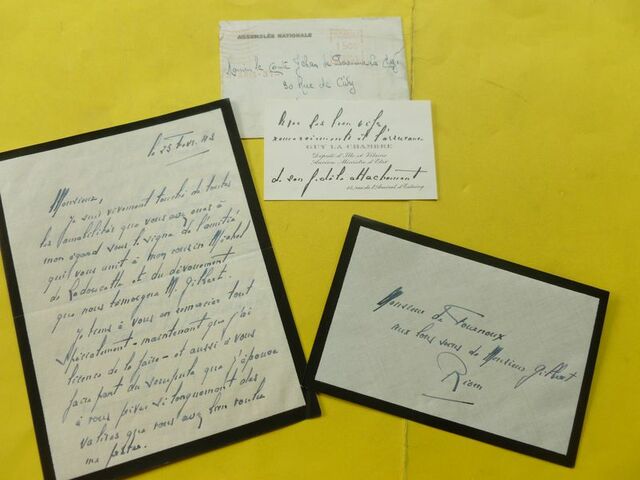 ASSEMBLÉE NATIONALE
Monsieur le comte Jehan de
30 Rue de
Avec ses bien vifs
remerciements et l'assurance
GUY LA CHAMBRE
Député d'Ille et Vilaine
Ancien Ministre d'Etat
de son fidèle attachement
le 23 Fevr. 43
Monsieur,
Je suis vivement touché de toutes
les amabilités que vous avez eues à
mon égard sous le signe de l'amitié
qui vous unit à mon cousin Michel
de Ladoucette et du dévouement
que nous témoigne M. Gilbert.
Je tiens à vous en remercier tout
spécialement - maintenant que j'ai
licence de le faire - et aussi à vous
faire part du scrupule que j'éprouve
à vous priver si longuement des
valises que vous avez bien voulu
me prêter.
Monsieur de Fournoux
aux bons soins de Monsieur Gilbert
Riom